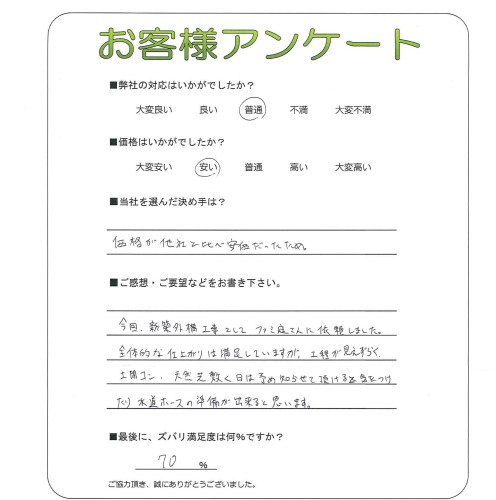 お客様アンケート
■弊社の対応はいかがでしたか？
大変良い 良い 普通 不満 大変不満
■価格はいかがでしたか？
大変安い 安い 普通 高い 大変高い
■当社を選んだ決め手は？
価格が他社と比べ安価だったため。
■ご感想・ご要望などをお書き下さい。
今回、新築外構工事として ファミ庭さんに依頼しました。
全体的な仕上がりは満足していますが、工程が見えずらく、
土間コン、天然芝敷く日は予め知らせて頂けると気をつけ
たり 水道ホースの準備が出来ると思います。
■最後に、ズバリ満足度は何％ですか？
70 %
ご協力頂き、誠にありがとうございました。